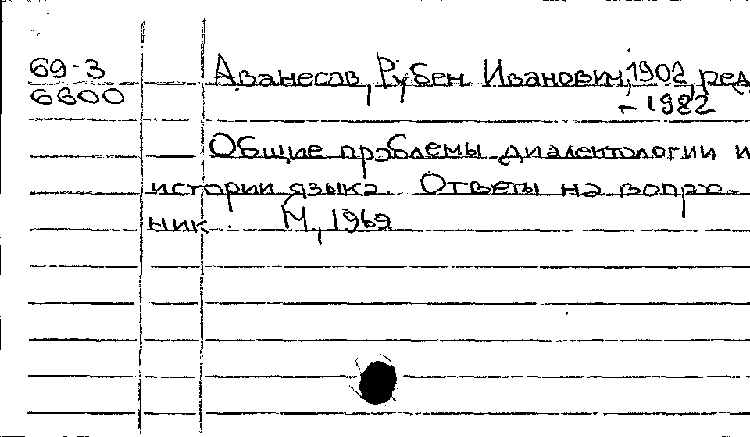 69-3
6800
Аванесов, Рубен Иванович, 1902, ред
- 1982
Общие проблемы диалектологии и
истории языка. Ответы на вопро-
ник. М., 1969